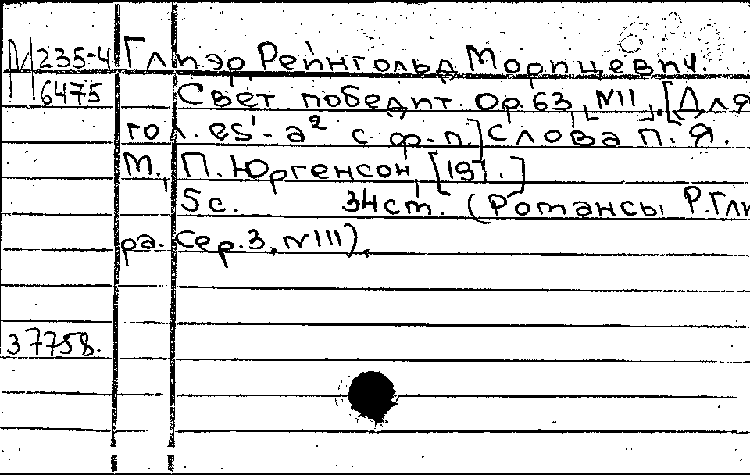 М 235-4 Глиэр Рейнгольд Морицевич.
6475 Свет победит. Ор.63, №11. [Для
гол. es¹-a² с ф-п.] Слова П. Я.
М., П. Юргенсон [191 .]
5с. 34ст. (Романсы Р.Гли
ра. Сер.3, №111).
37758.